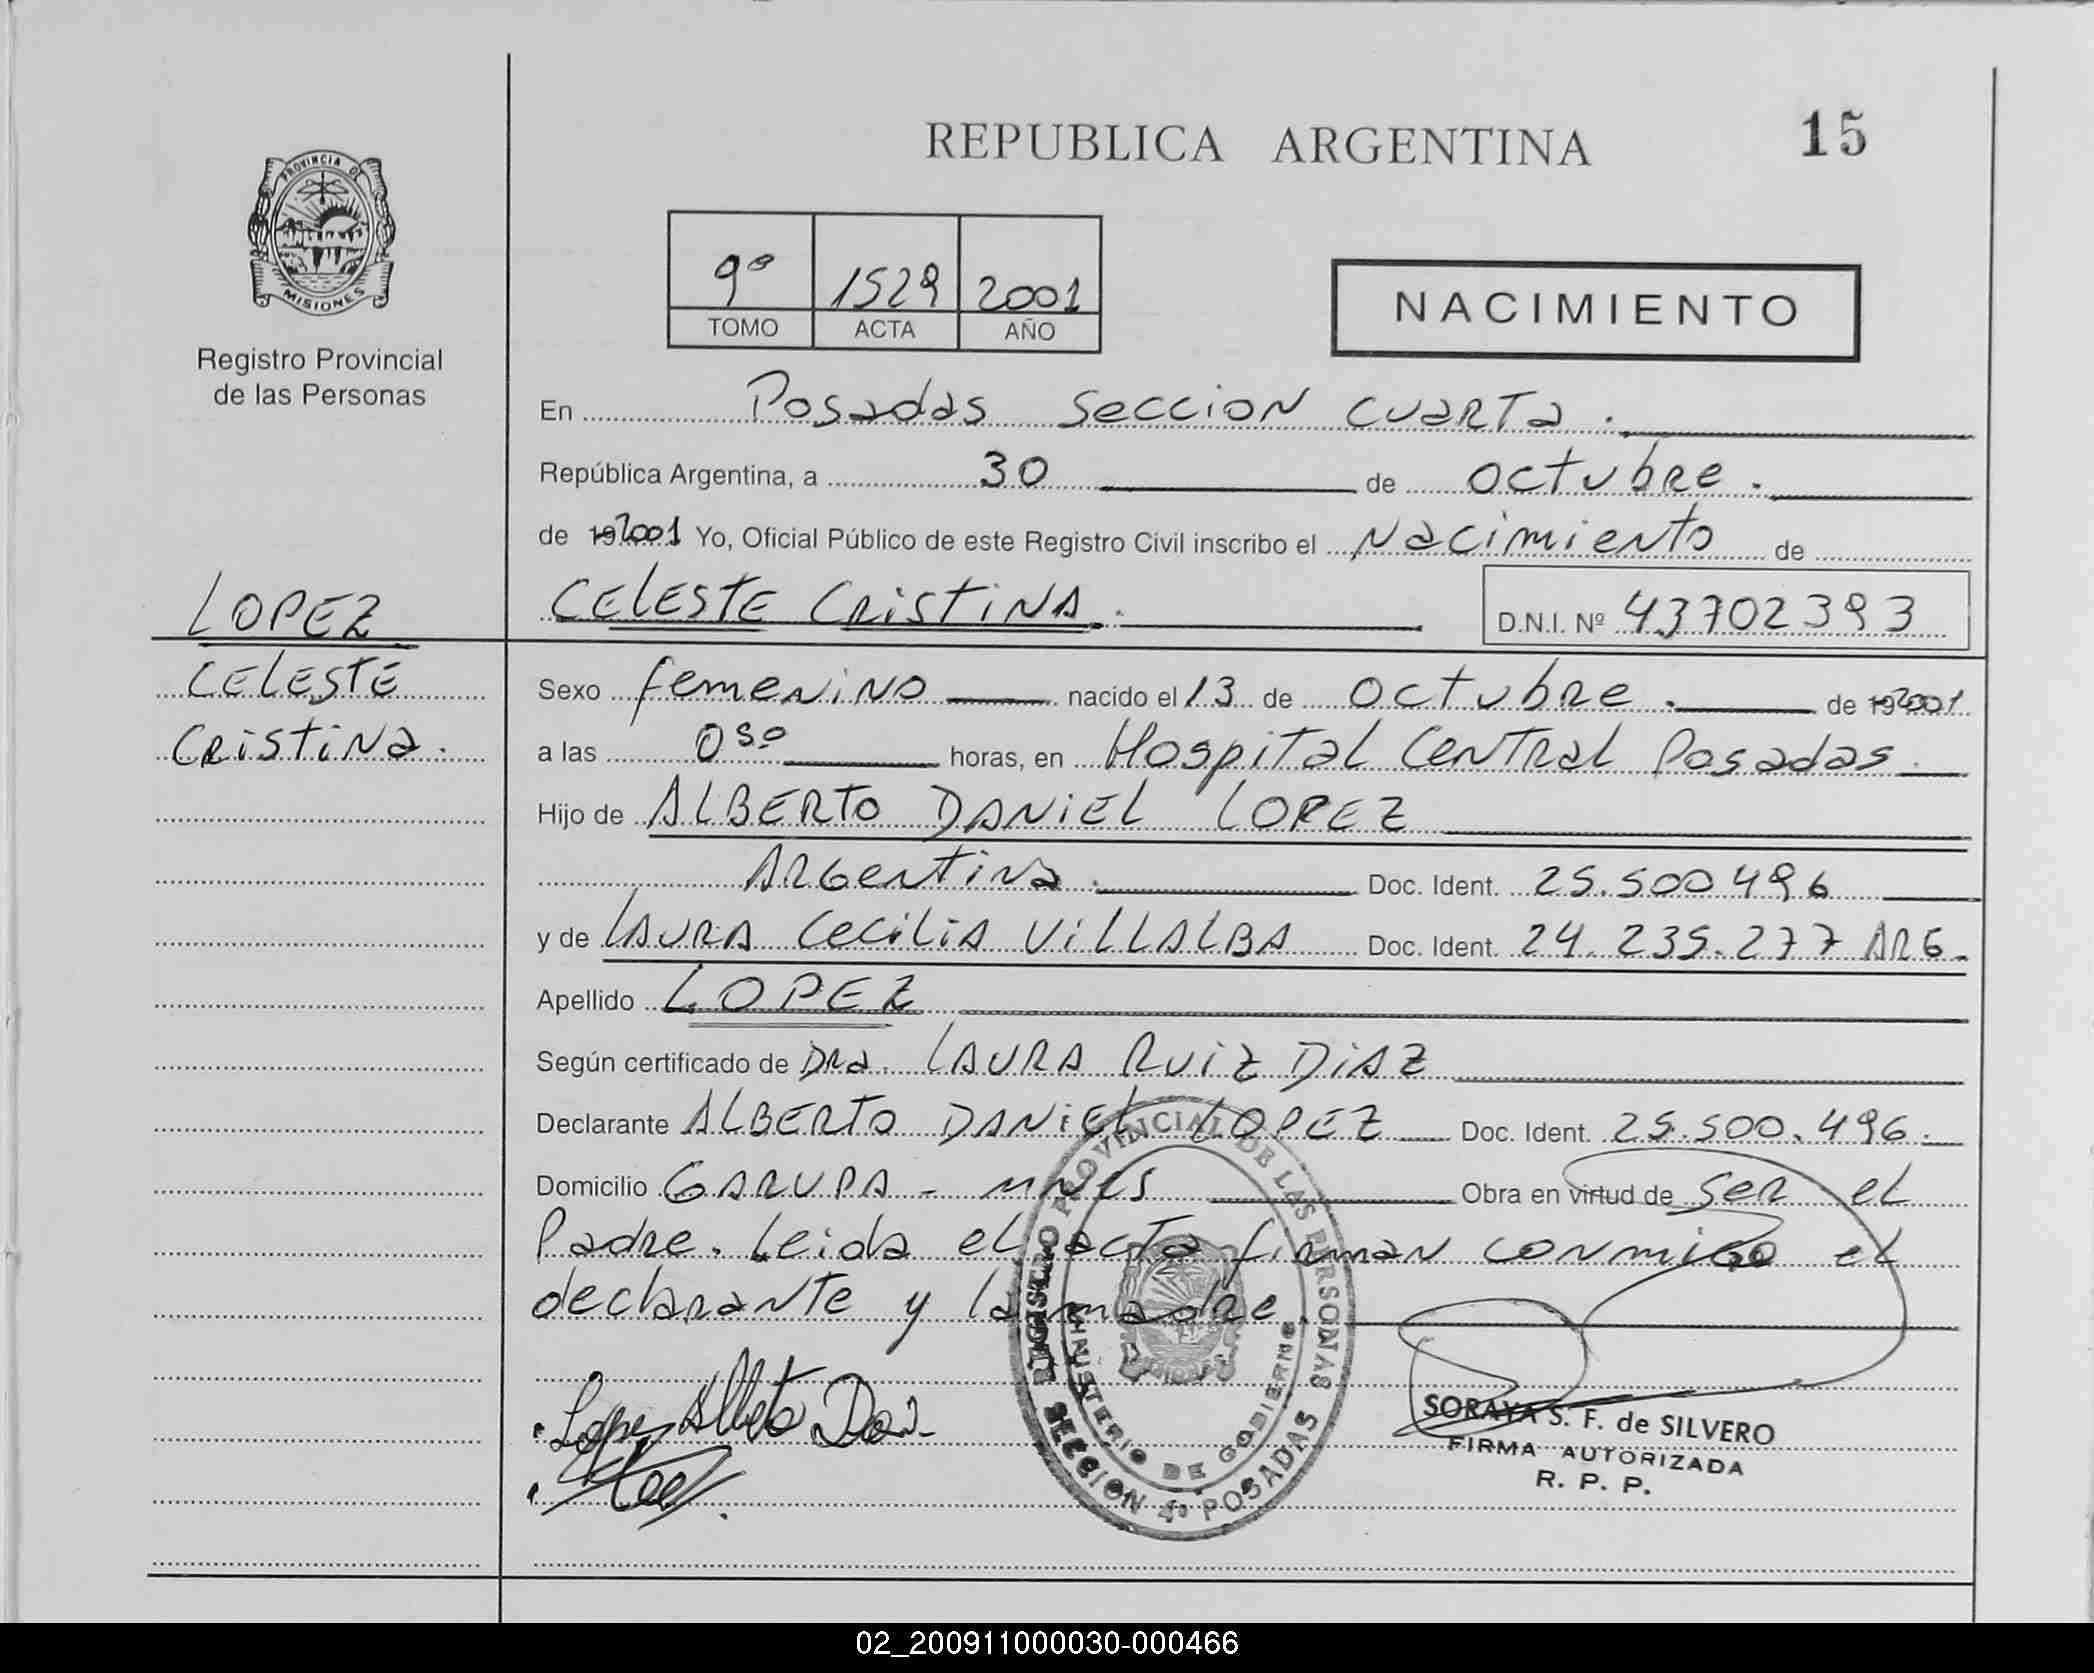 REPUBLICA ARGENTINA
15
PROVINCIA DE
MISIONES
Registro Provincial
de las Personas
9º 1529 2001
TOMO ACTA AÑO
NACIMIENTO
En Posadas Seccion Cuarta.
República Argentina, a 30 de octubre.
de 19 2001 Yo, Oficial Público de este Registro Civil inscribo el Nacimiento de
CELESTE CRISTINA.
D.N.I. Nº 43702393
LOPEZ
CELESTE
CRISTINA.
Sexo femenino nacido el 13 de octubre. de 19 2001
a las 0 30 horas, en Hospital Central Posadas.
Hijo de ALBERTO DANIEL LOPEZ
Argentina. Doc. Ident. 25.500 496
y de LAURA CECILIA VILLALBA Doc. Ident. 24.235.277 ARG.
Apellido LOPEZ
Según certificado de Dra. LAURA RUIZ DIAZ
Declarante ALBERTO DANIEL LOPEZ Doc. Ident. 25.500.496.
Domicilio GARUPA - Mnes Obra en virtud de ser el
Padre. Leida el acta firman conmigo el
declarante y la madre.
Lopez Alberto
REGISTRO PROVINCIAL DE LAS PERSONAS
MINISTERIO DE GOBIERNO
SECCION 4º POSADAS
SORAYA S. F. de SILVERO
FIRMA AUTORIZADA
R. P. P.
02_200911000030-000466